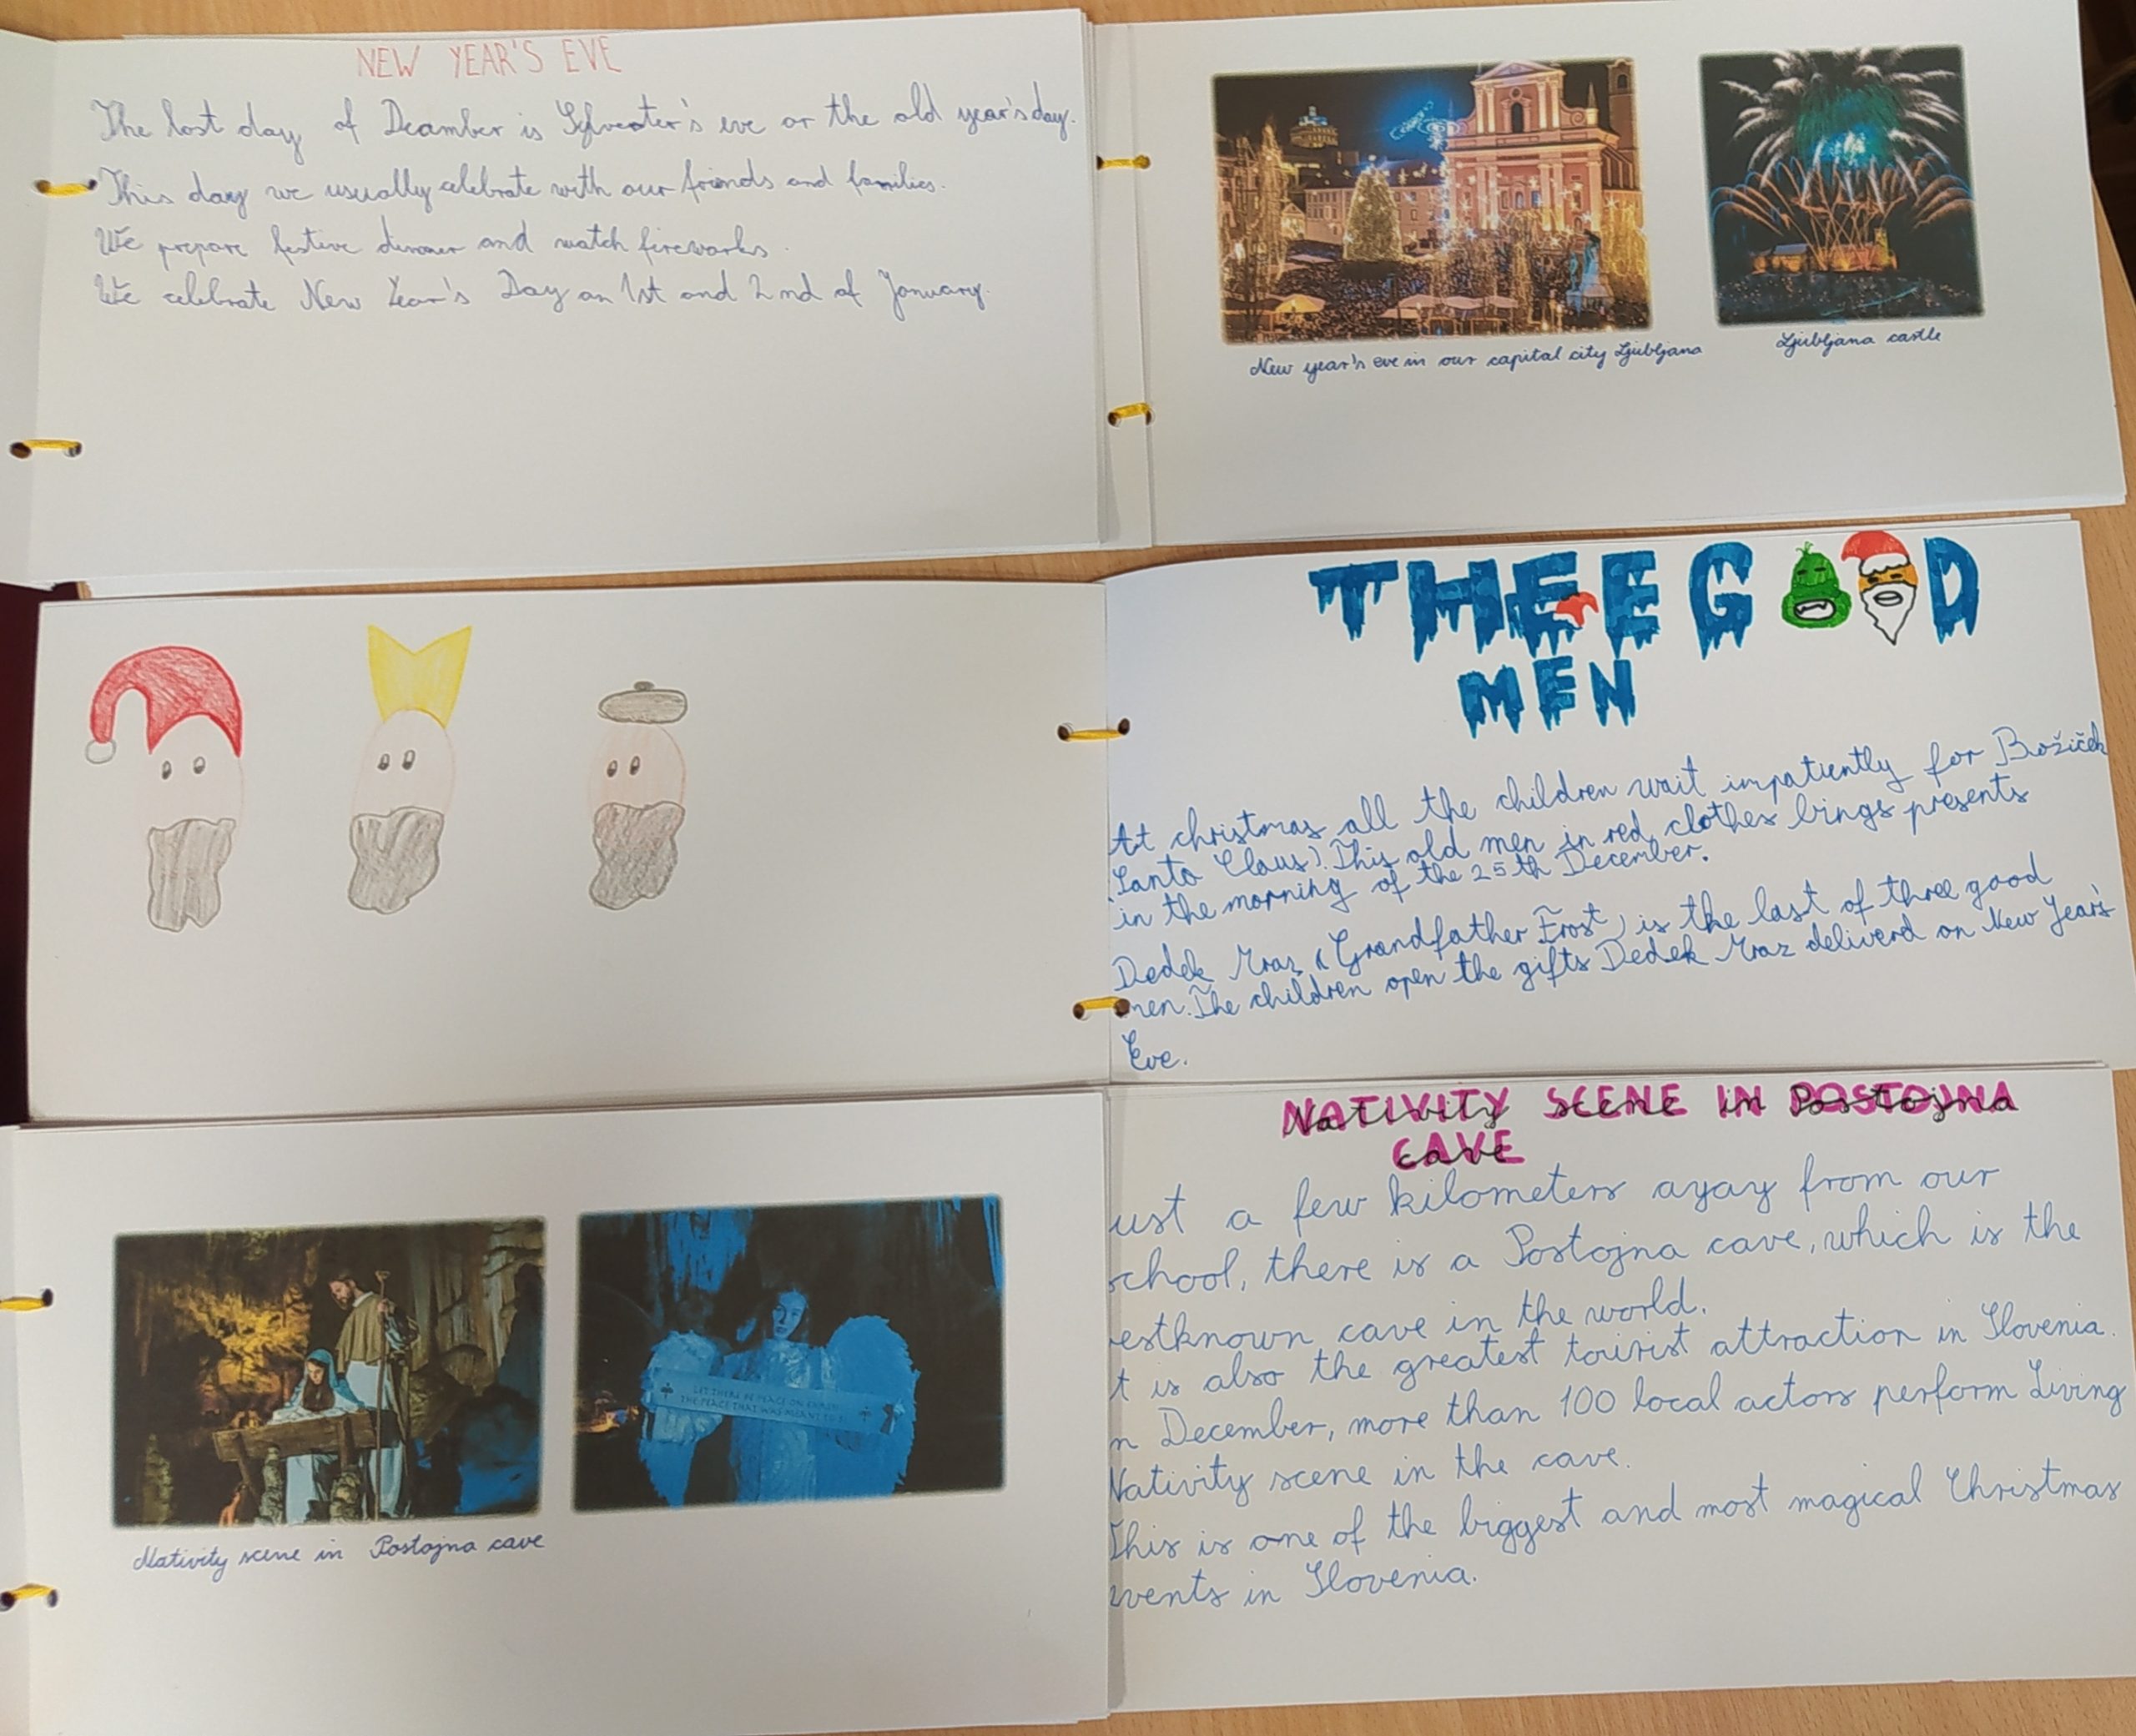 NEW YEAR'S EVE
The last day of Dcamber is Sylvester's eve or the old year's day.
This day we usually celebrate with our friends and families.
We prepare festive dinner and watch fireworks.
We celebrate New Year's Day on 1st and 2nd of January.
New year's eve in our capital city Ljubljana
Ljubljana castle
THEE GOOD
MEN
At christmas all the children wait impatiently for Božiček
(Santa Claus). This old men in red clothes bings presents
in the morning of the 25th December.
Dedek Mraz (Grandfather Frost) is the last of three good
men. The children open the gifts Dedek Mraz deliverd on New Year's
Eve.
LET THERE BE PEACE ON EARTH
THE PEACE THAT WAS MEANT TO BE
Nativity scene in Postojna cave
NATIVITY SCENE IN POSTOJNA
CAVE
ust a few kilometers ayay from our
school, there is a Postojna cave, which is the
estknown cave in the world.
t is also the greatest tourist attraction in Slovenia.
n December, more than 100 local actors perform Living
Nativity scene in the cave.
This is one of the biggest and most magical Christmas
events in Slovenia.